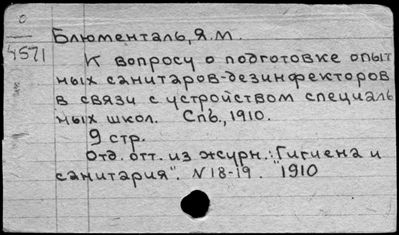 0
4571
Блюменталь, Я.М.
К вопросу о подготовке опыт
ных санитаров-дезинфекторов
в связи с устройством специаль
ных школ. Спб., 1910.
9 стр.
Отд. отт. из журн.: "Гигиена и
санитария". N 18-19. 1910